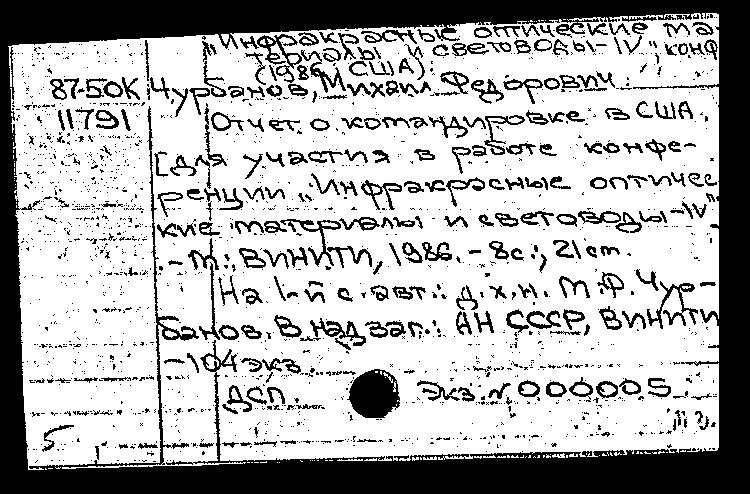 „Инфракрасные оптические ма-
териалы и световоды-IV", конф
(1986, США).
87-50К Чурбанов, Михаил Федорович.
11791 Отчет о командировке в США.
[для участия в работе конфе-
ренции „Инфракрасные оптичес
кие материалы и световоды-IV"
.- М.: ВИНИТИ, 1986. - 8с.; 21 cm.
На 1-й с. авт.: д.х.н. М.Ф. Чур-
банов. В надзаг.: АН СССР, ВИНИТИ
-104 экз.
ДСП. Экз. N 000005.
5